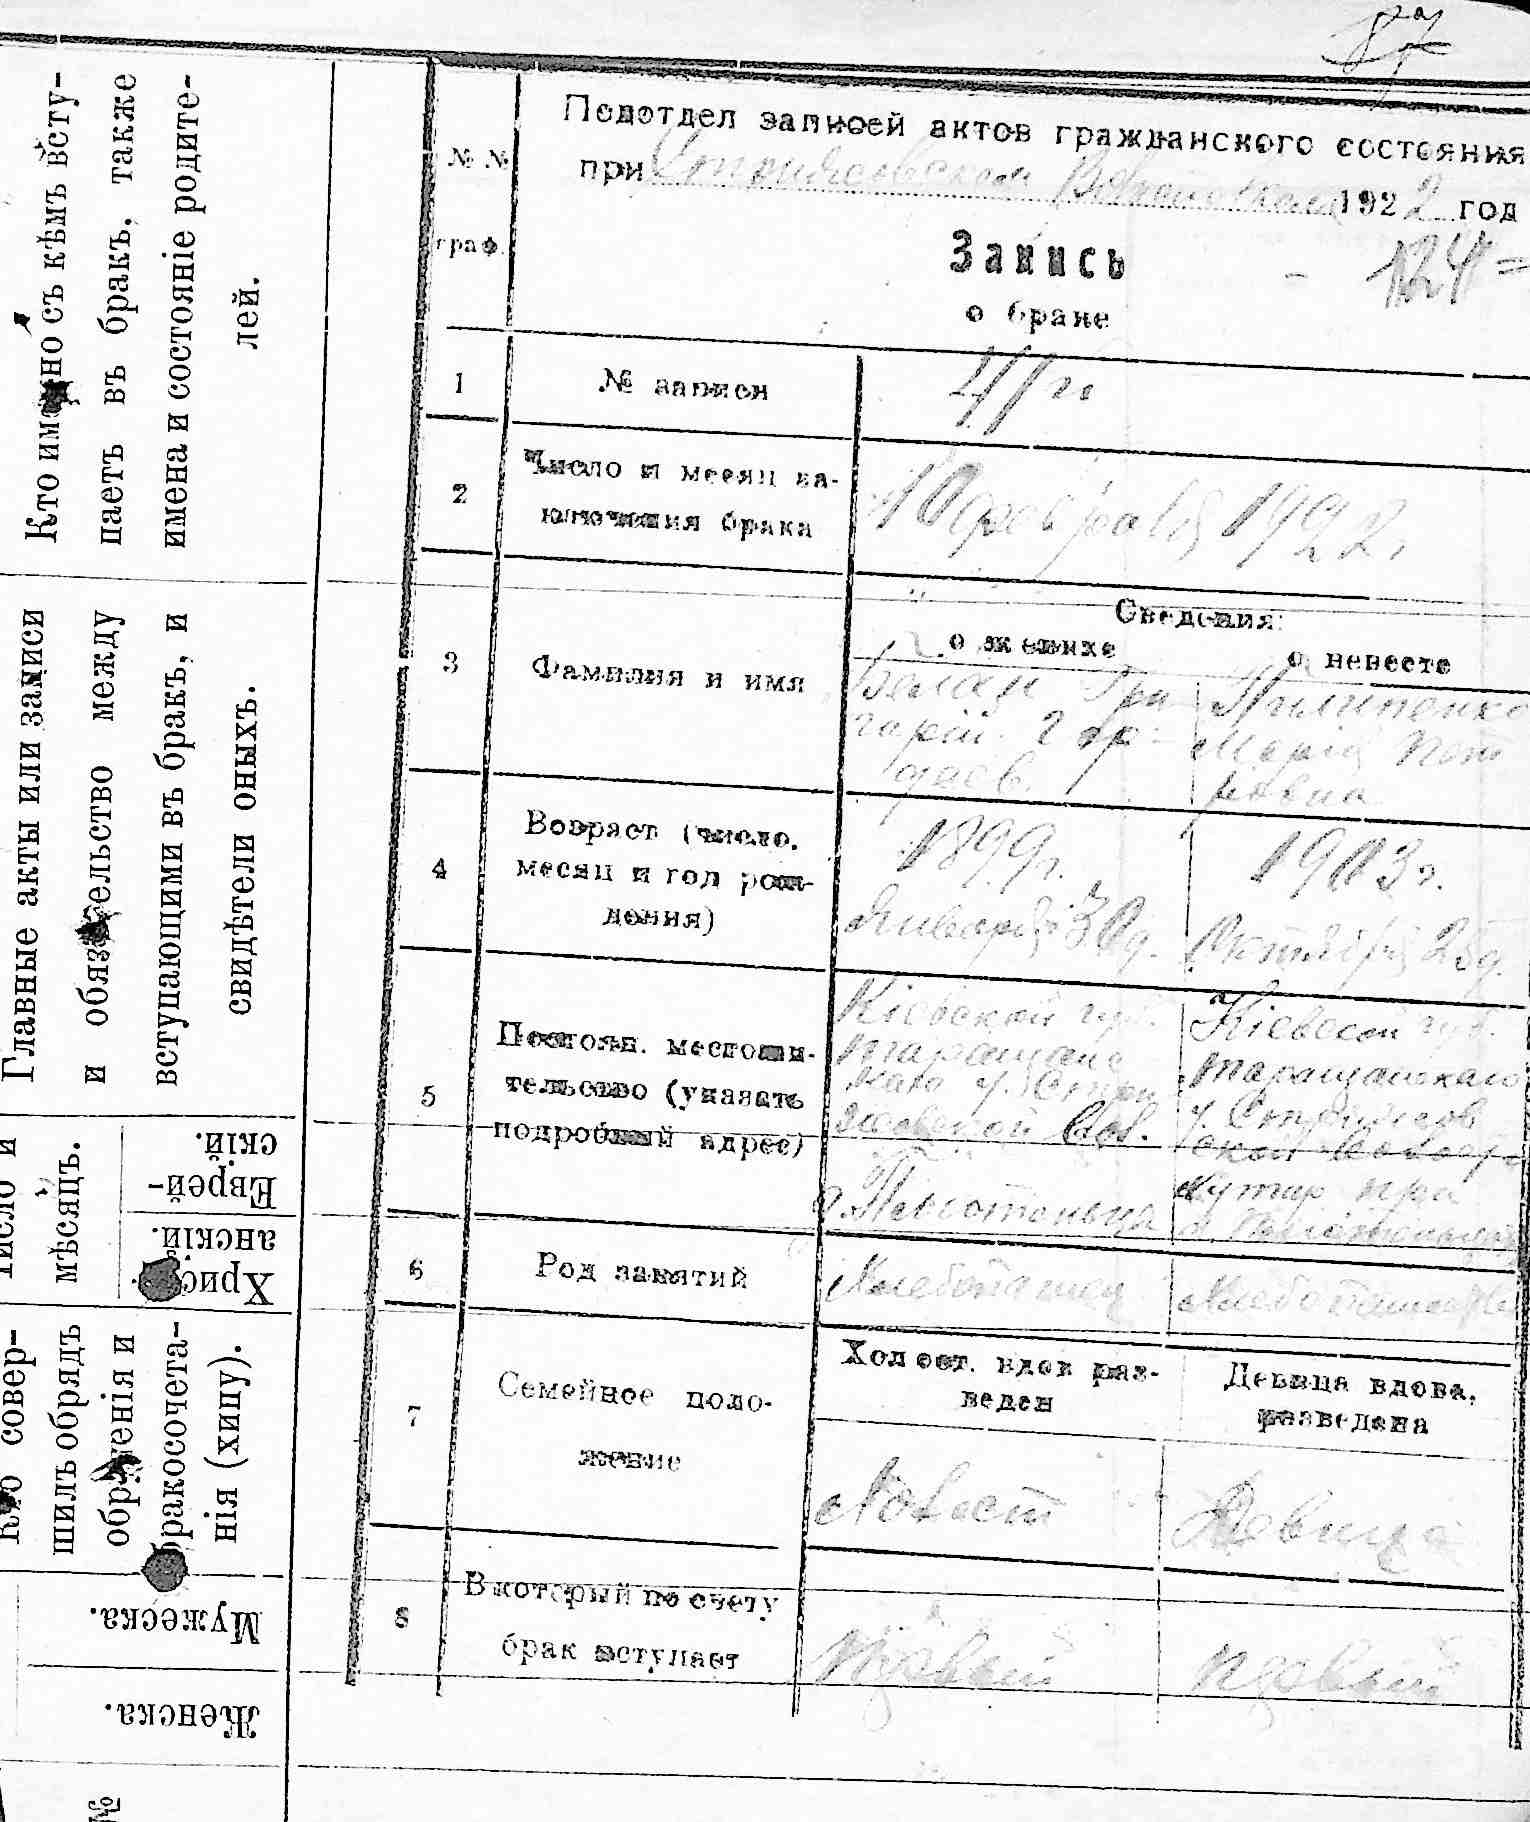 87
Подотдел записей актов гражданского состояния
при Стрижевском 1922 год
№ №
граф.
Запись
124
о браке
1
№ записи
41й
2
Число и месяц за-
ключения брака
10 февраля 1922 г.
Сведения:
о женихе
о невесте
3
Фамилия и имя
Балан Гри
горій Гор-
деев.
Пилипенко
Марія Пет
ровна
4
Возраст (число,
месяц и год рож-
дения)
1899 г.
Января 30 д.
1903 г.
Октября 25 д.
5
Постоян. местожи-
тельство (указать
подробный адрес)
Кіевской губ.
Таращанс
каго у. Стри
жевской Вол.
Кіевской губ.
Таращанскаго
у. Стрижев
ской Волости
хутор при
6
Род занятий
Хлебопашец
7
Семейное поло-
жение
Холост. вдов раз-
веден
Девица вдова,
разведена
Холост
Девица
8
В который по счету
брак вступает
Первый
первый
Кто именно съ кѣмъ всту-
паетъ въ бракъ, также
имена и состояніе родите-
лей.
Главные акты или записи
и обязательство между
вступающими въ бракъ, и
свидѣтели оныхъ.
Число и
мѣсяцъ.
Еврей-
скій.
Христі
анскій.
Кто совер-
шилъ обрядъ
обрученія и
бракосочета-
нія (хипу).
Мужеска.
Женска.
№